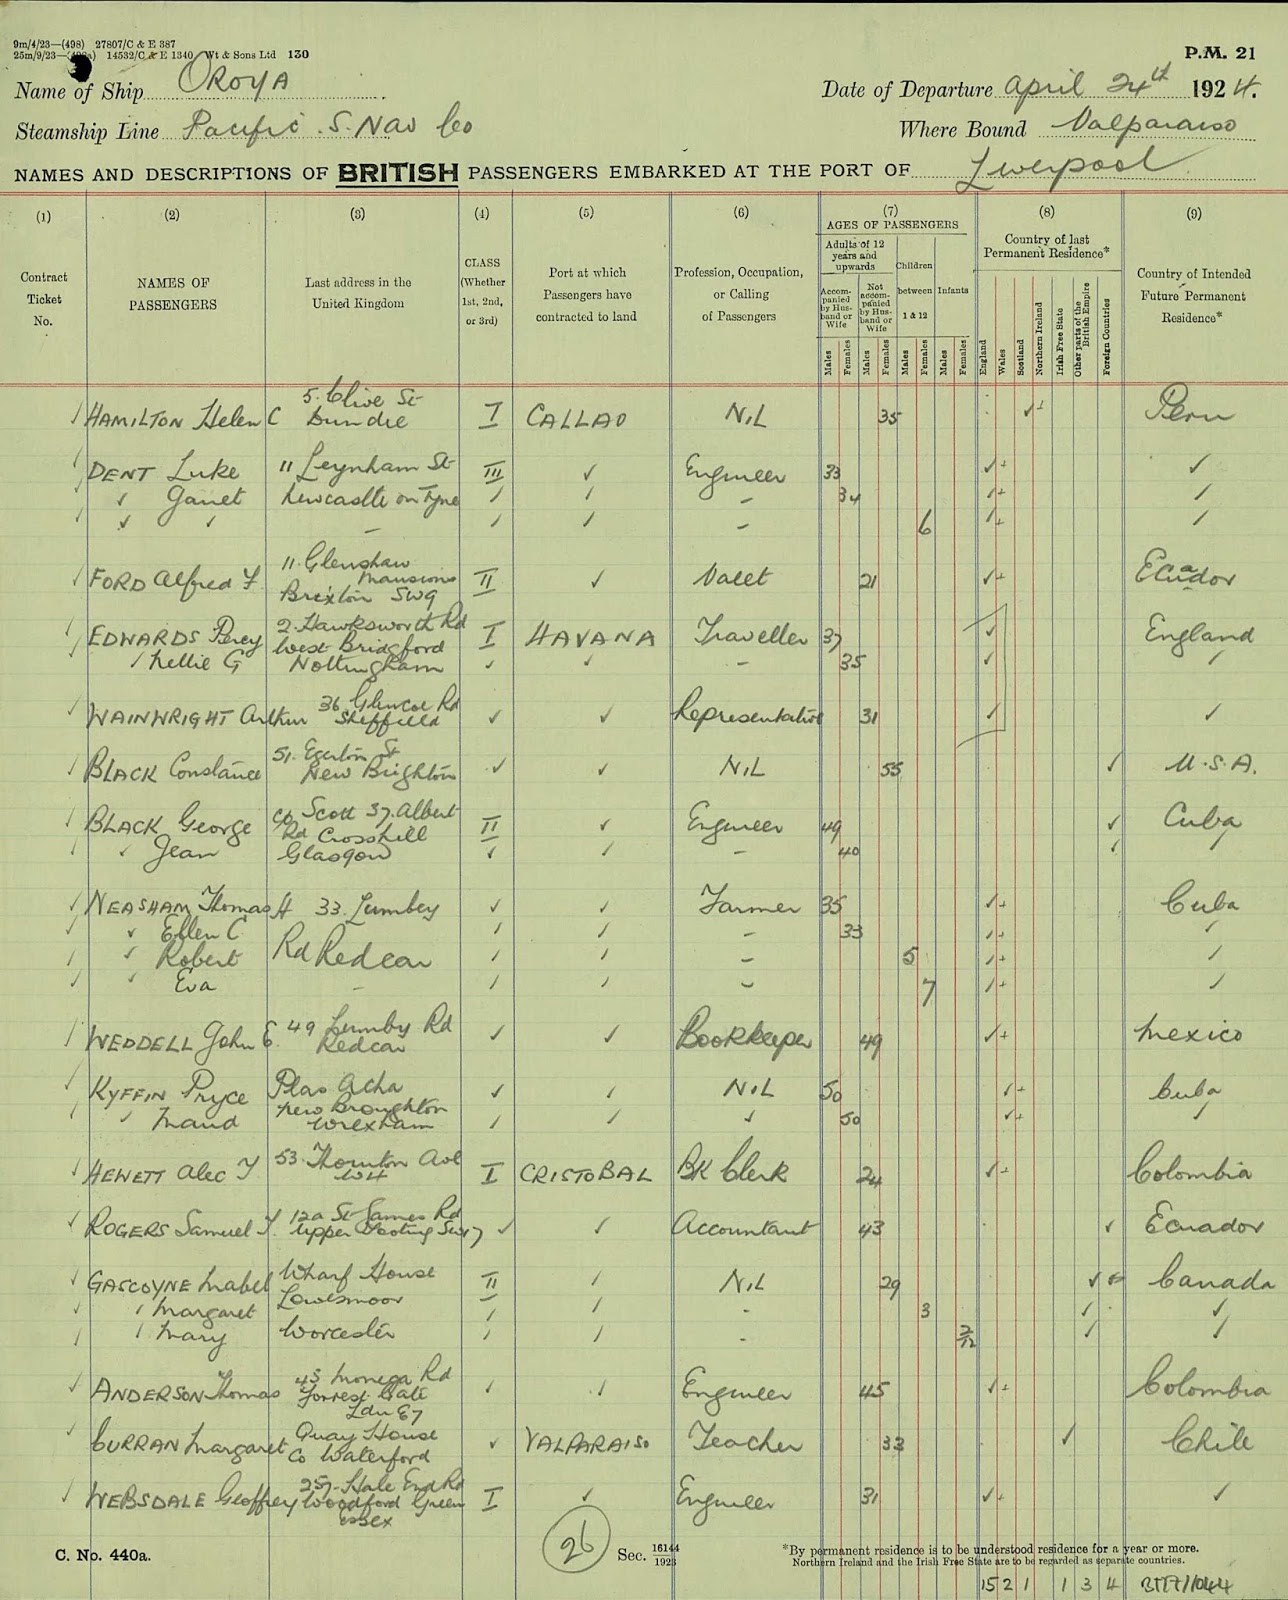 9m/4/23—(498) 27807/C & E 387
25m/9/23— 14532/C & E 1340 Wt & Sons Ltd 130
P.M. 21
Name of Ship OROYA
Date of Departure April 24th 1924.
Steamship Line Pacific S. Nav Co
Where Bound Valparaiso
NAMES AND DESCRIPTIONS OF BRITISH PASSENGERS EMBARKED AT THE PORT OF Liverpool
(1) (2) (3) (4) (5) (6) (7) (8) (9)
Contract Ticket No.
NAMES OF PASSENGERS
Last address in the United Kingdom
CLASS (Whether 1st, 2nd, or 3rd)
Port at which Passengers have contracted to land
Profession, Occupation, or Calling of Passengers
AGES OF PASSENGERS
Adults of 12 years and upwards
Accompanied by Husband or Wife
Not accompanied by Husband or Wife
Children between 1 & 12
Infants
Males Females Males Females Males Females Males Females
Country of last Permanent Residence*
England Wales Scotland Northern Ireland Irish Free State Other parts of the British Empire Foreign Countries
Country of Intended Future Permanent Residence*
5. Clive St
✓ HAMILTON Helen C Dundee I CALLAO NiL 35 ✓+ Peru
✓ DENT Luke 11 Leynham St III ✓ Engineer 33 ✓+ ✓
✓ ✓ Janet Newcastle on Tyne ✓ ✓ – 34 ✓+ ✓
✓ ✓ ✓ – ✓ ✓ – 6 ✓+ ✓
11. Glenshaw
✓ FORD Alfred F Mansions II ✓ Valet 21 ✓+ Ecuador
Brixton SW9
✓ EDWARDS Percy 2. Hawksworth Rd I HAVANA Traveller 37 ✓ England
West Bridgford
✓ ✓ Nellie G Nottingham ✓ ✓ – 35 ✓ ✓
36 Glencoe Rd
✓ WAINWRIGHT Arthur Sheffield ✓ ✓ Representative 31 ✓ ✓
51. Egerton St
✓ BLACK Constance New Brighton ✓ ✓ NiL 55 ✓ U.S.A.
✓ BLACK George c/o Scott 37. Albert II ✓ Engineer 49 ✓ Cuba
Rd Crosshill
✓ ✓ Jean Glasgow ✓ ✓ – 40 ✓ ✓
✓ NEASHAM Thomas H 33 Lumbey ✓ ✓ Farmer 35 ✓+ Cuba
✓ ✓ Ellen C ✓ ✓ – 33 ✓+ ✓
✓ ✓ Robert Rd Redcar ✓ ✓ – 5 ✓+ ✓
✓ ✓ Eva – ✓ ✓ – 7 ✓+ ✓
49 Lumby Rd
✓ WEDDELL John E. Redcar ✓ ✓ Bookkeeper 49 ✓+ Mexico
✓ KYFFIN Pryce Plas Acha ✓ ✓ NiL 50 ✓+ Cuba
New Broughton
✓ ✓ Maud Wrexham ✓ ✓ ✓ 50 ✓+ ✓
53. Thornton Ave
✓ HEWETT Alec F W4 I CRISTOBAL BK Clerk 24 ✓+ Colombia
12a St James Rd
✓ ROGERS Samuel J. Upper Tooting SW17 ✓ ✓ Accountant 43 ✓ Ecuador
✓ GASCOYNE Mabel Wharf House II ✓ NiL 29 ✓ Canada
Lowesmoor
✓ ✓ Margaret ✓ ✓ - 3 ✓ ✓
✓ ✓ Mary Worcester ✓ ✓ - 2/12 ✓ ✓
45 Monega Rd
✓ ANDERSON Thomas Forrest Gate ✓ ✓ Engineer 45 ✓+ Colombia
Ldn E7
✓ CURRAN Margaret Quay House ✓ VALPARAISO Teacher 33 ✓ Chile
Co Waterford
257. Hale End Rd
✓ WEBSDALE Geoffrey Woodford Green I ✓ Engineer 31 ✓+ ✓
Essex
26
C. No. 440a.
Sec. 16144/1923
*By permanent residence is to be understood residence for a year or more.
Northern Ireland and the Irish Free State are to be regarded as separate countries.
15 2 1 1 3 4 BT27/1044